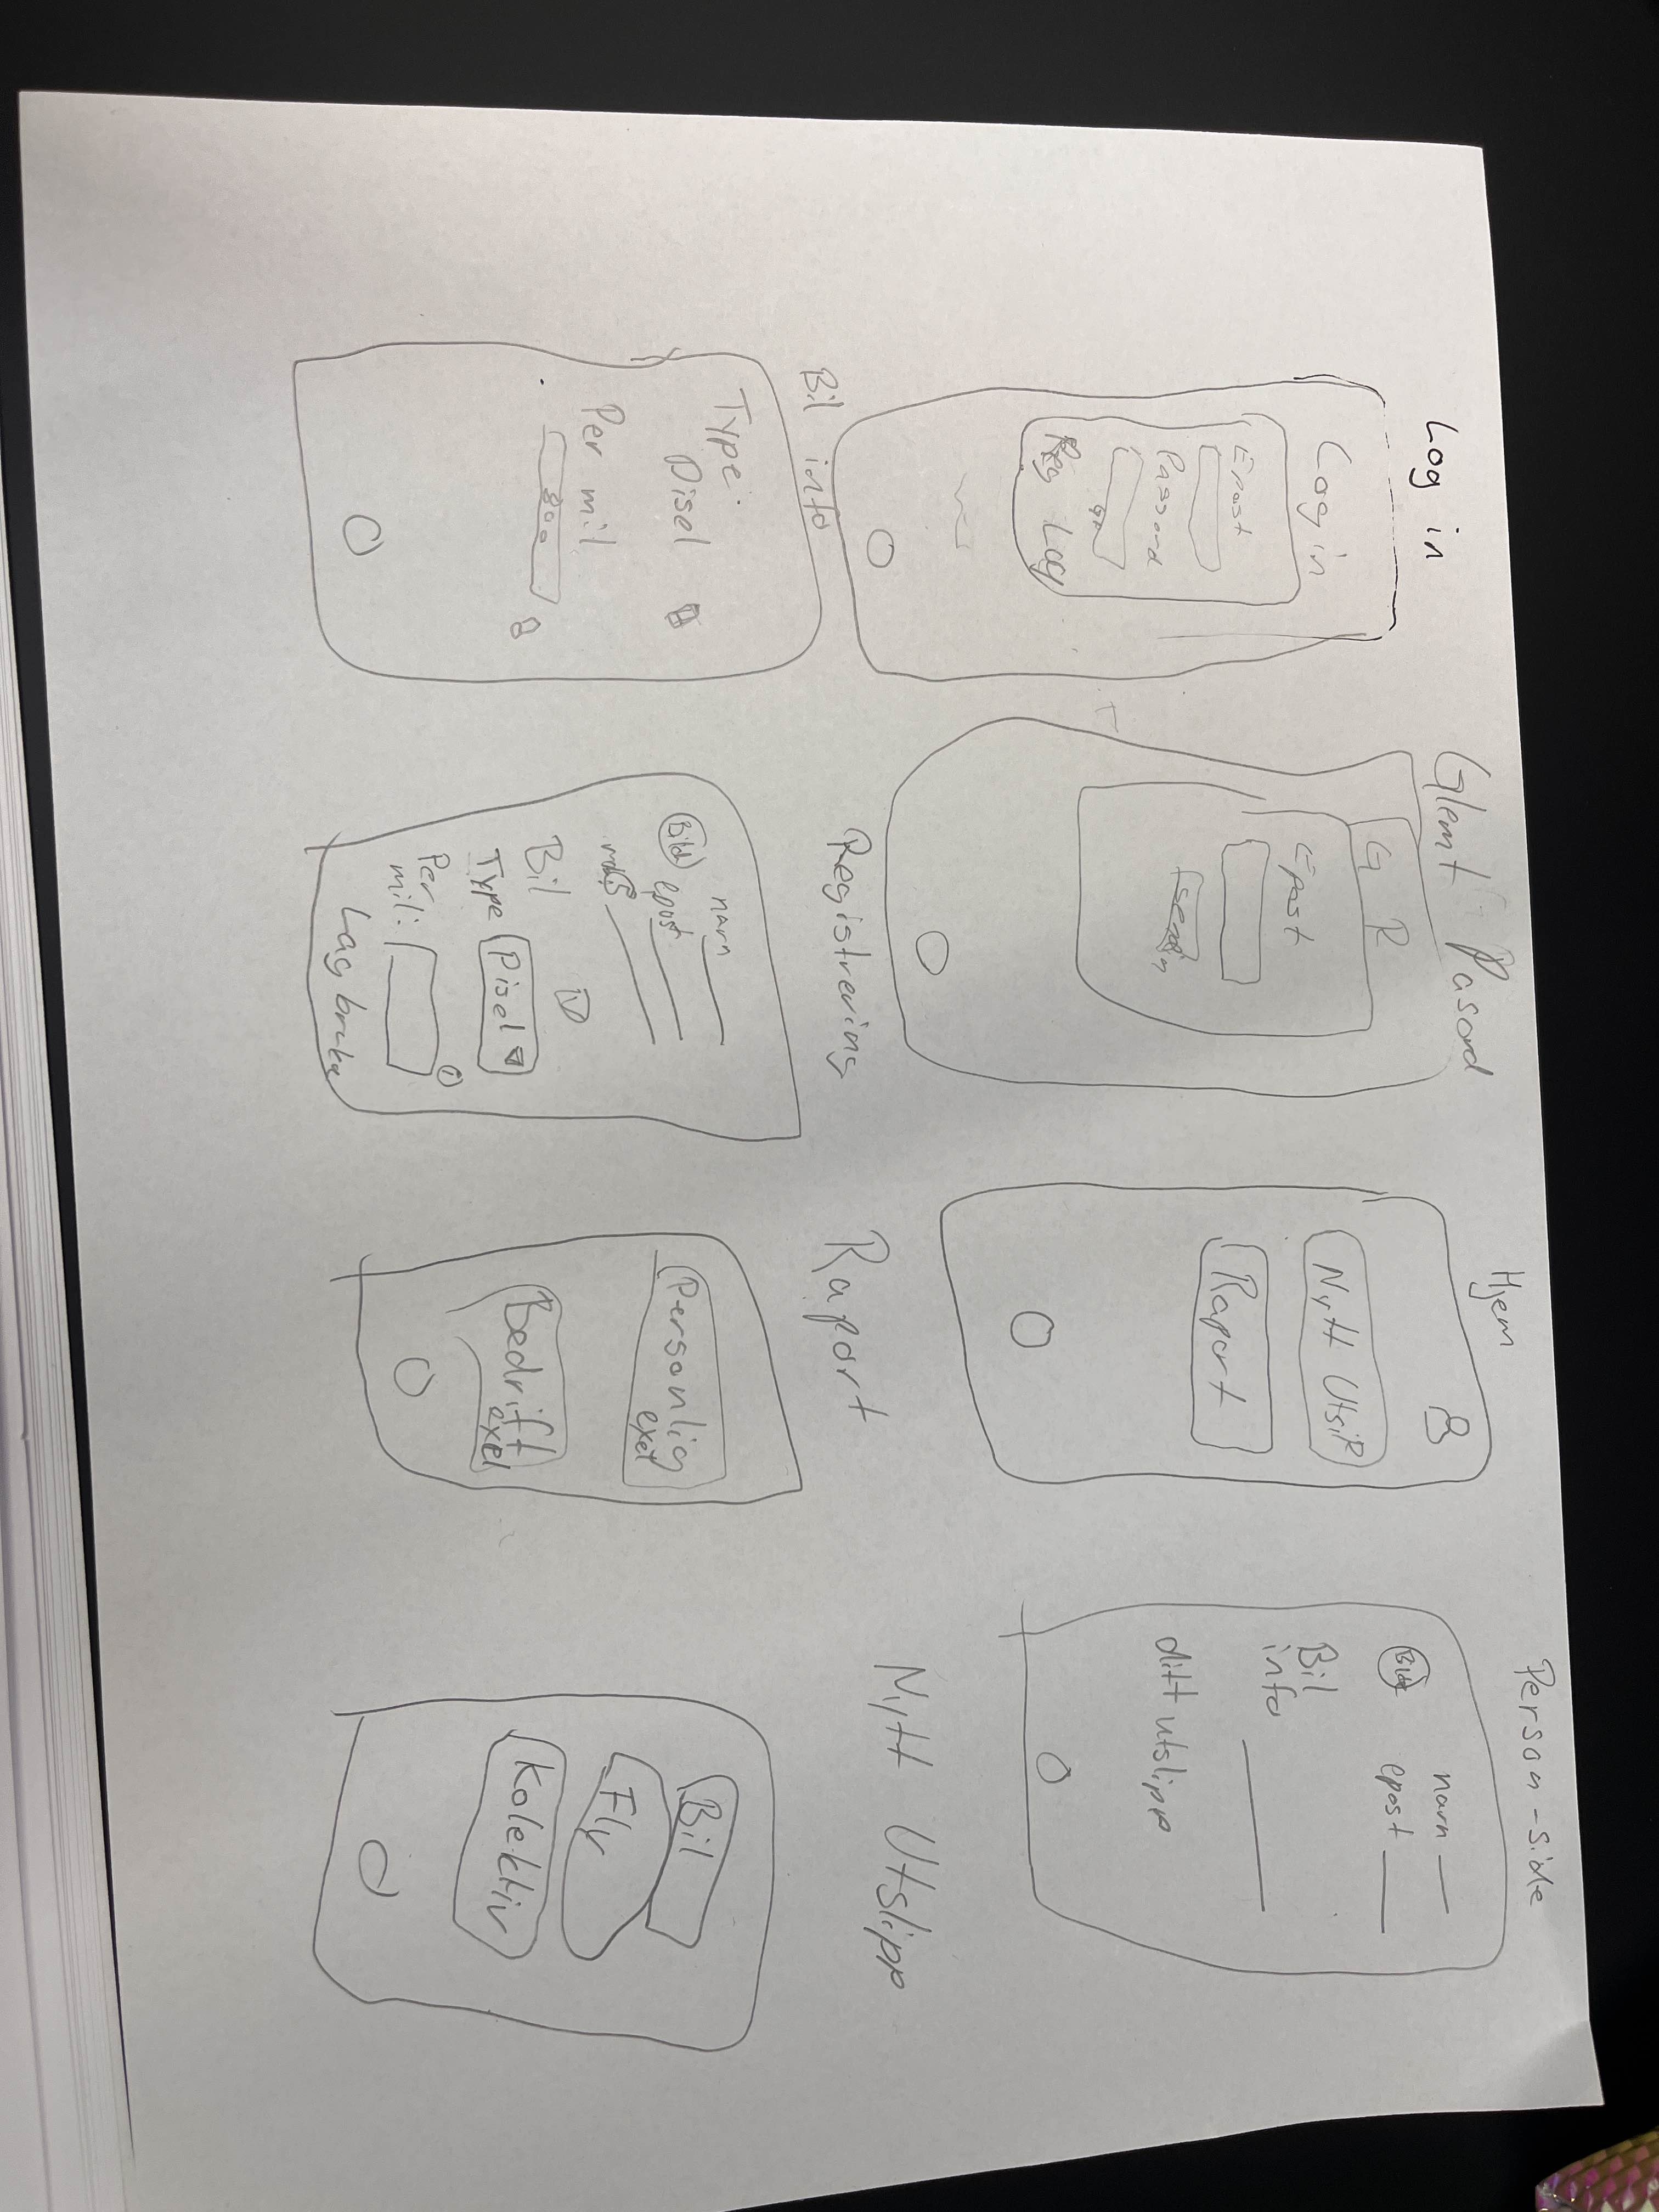 Log in
Log in
Epost
Passord
Reg Log
Glemt Pasord
G P
Epost
Hjem
Nytt Utslip
Raport
Person-side
Bilde
navn
epost
Bil
info
ditt utslipp
Bil info
Type:
Disel
Per mil
800
Registrering
navn
Bilde
epost
Bil
Type
Disel
Per
mil:
i
Lag bruker
Raport
Personlig
exel
Bedrift
exel
Nytt Utslipp
Bil
Fly
Kolektiv